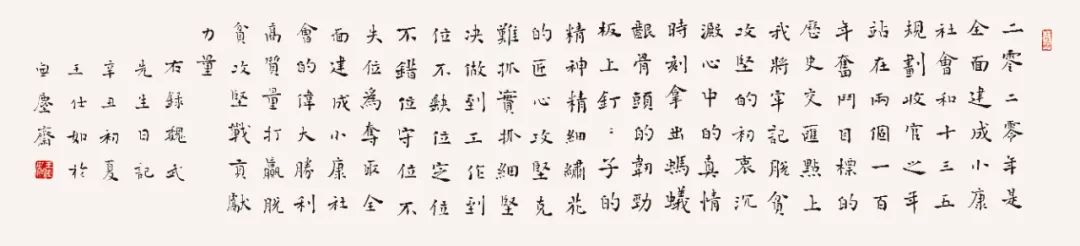 二零二零年是
全面建成小康
社會和十三五
規劃收官之年
站在兩個一百
年奮鬥目標的
歷史交匯點上
我將牢記脫貧
攻堅的初衷沉
澱心中的真情
時刻拿出螞蟻
齦骨頭的韌勁
板上釘：子的
精神精細繡花
的匠心攻堅克
難抓實抓細堅
决做到工作到
位不缺位定位
不錯位守位不
失位為奪取全
面建成小康社
會的偉大勝利
高質量打贏脫
貧攻堅戰貢獻
力量
右錄魏武
先生日記
辛丑初夏
王仕如於
塵齋